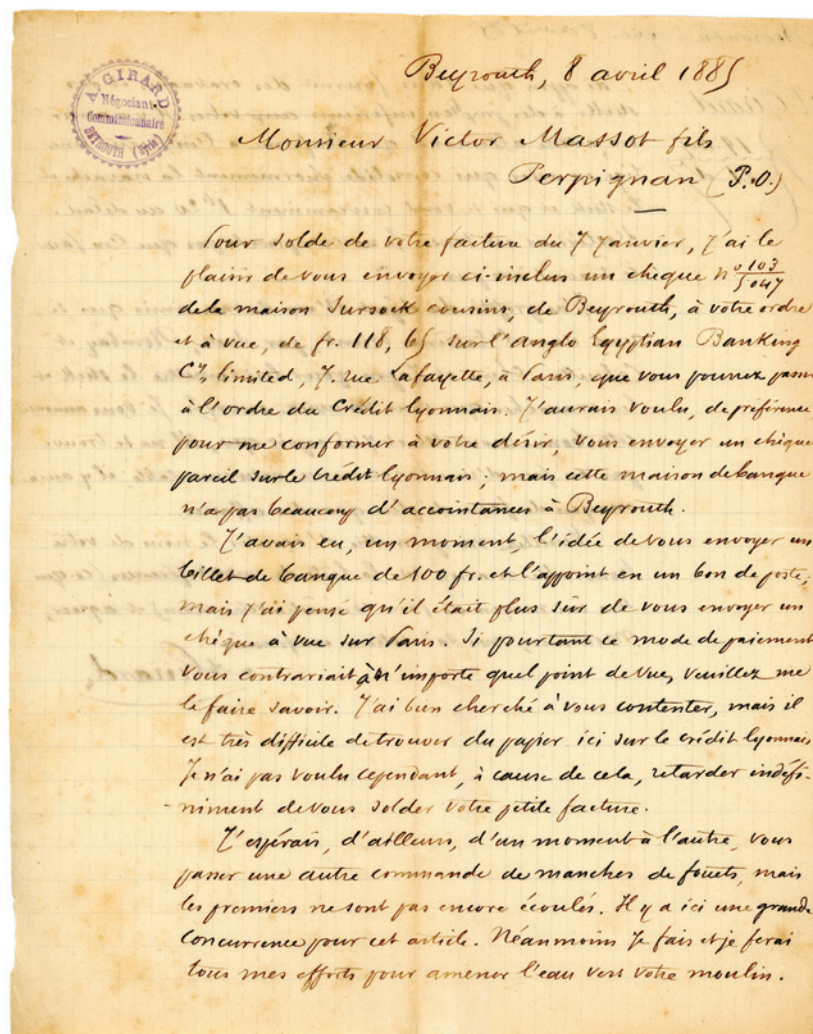 A. GIRARD
Négociant-
Commissionnaire
BEYROUTH (Syrie)
Beyrouth, 8 avril 1885
Monsieur Victor Massot fils
Perpignan (P.O.)
Pour solde de votre facture du 7 Janvier, j'ai le
plaisir de vous envoyer ci-inclus un chèque nº 103/5047
de la maison Sursock cousins, de Beyrouth, à votre ordre
et à vue, de fr. 118,65 sur l'anglo Egyptian Banking
Cy, limited, 7. rue Lafayette, à Paris, que vous pourrez passer
à l'ordre du Crédit lyonnais. J'aurais voulu, de préférence,
pour me conformer à votre désir, vous envoyer un chèque
pareil sur le crédit lyonnais ; mais cette maison de banque
n'a pas beaucoup d'accointances à Beyrouth.
J'avais eu, un moment, l'idée de vous envoyer un
billet de banque de 100 fr. et l'appoint en un bon de poste,
mais j'ai pensé qu'il était plus sûr de vous envoyer un
chèque à vue sur Paris. Si pourtant ce mode de paiement
vous contrariait à n'importe quel point de vue, veuillez me
le faire savoir. J'ai bien cherché à vous contenter, mais il
est très difficile de trouver du papier ici sur le crédit lyonnais
Je n'ai pas voulu cependant, à cause de cela, retarder indéfi-
niment de vous solder votre petite facture.
J'espérais, d'ailleurs, d'un moment à l'autre, vous
passer une autre commande de manches de fouets, mais
les premiers ne sont pas encore écoulés. Il y a ici une grande
concurrence pour cet article. Néanmoins je fais et je ferai
tous mes efforts pour amener l'eau vers votre moulin.